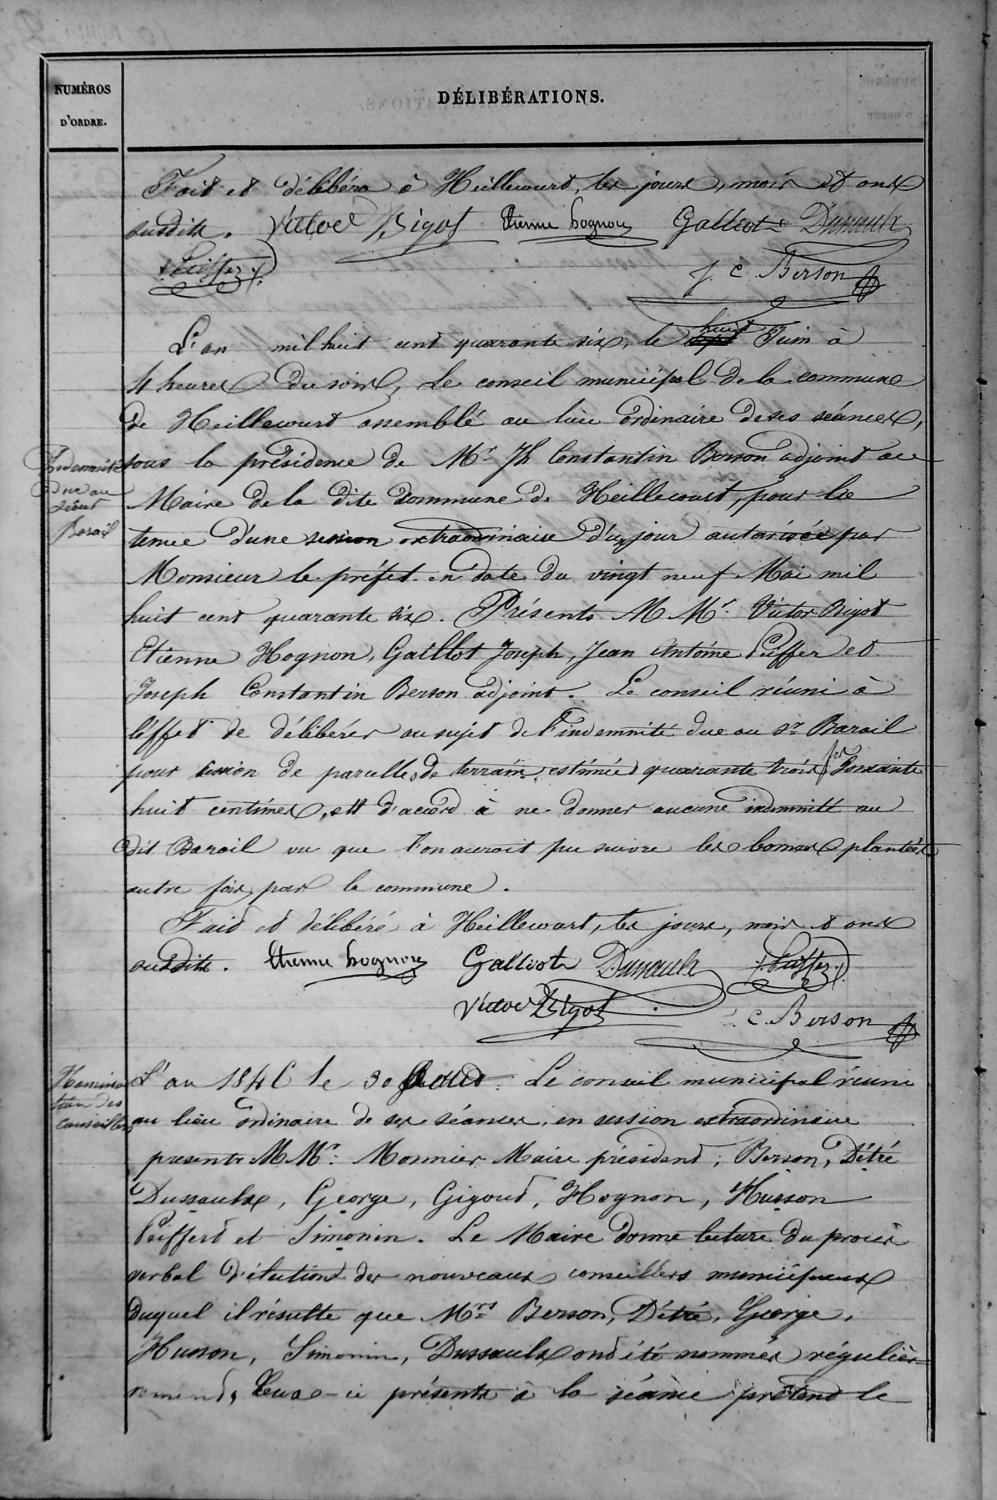 NUMÉROS
D'ORDRE.
DÉLIBÉRATIONS.
Fait et délibéra à Heillecourt, les jours, mois et ans
susdits. Victor Bigot Etienne hognon Galliot Dussaulx
Peiffer
J. C Berson
L'an mil huit cent quarante six, le huit Juin à
4 heures du soir, Le conseil municipal de la commune
de Heillecourt assemblé au lieu ordinaire de ses séances,
Indemnité
due au
sieur
Barail
sous la présidence de Mr. Jh Constantin Berson adjoint au
Maire de la dite Commune de Heillecourt, pour la
tenue d'une session extraordinaire dujour autorisée par
Monsieur le préfet en date du vingt neuf Mai mil
huit cent quarante six. Présents M Mrs. Victor Bigot
Etienne Hognon, Gaillot Joseph, Jean Antoine Peiffer et
Joseph Constantin Berson adjoint. Le conseil réuni à
l'effet de délibérer au sujet de l'indemnité due au Sr Barail
pour cession de parcelle de terrain estimée quarante trois fr soixante
huit centimes, est d'accord à ne donner aucune indemnité au
dit Barail vu que l'on aurait pu suivre les bornes plantées
autre fois par la commune.
Fait et délibéré à Heillecourt, les jours, mois et ans
susdits. Etienne hognon Galliot Dussaulx Peiffer
Victor Bigot
J. C. Berson
Nomina
tion des
conseillers
L'an 1846 le 30 Août. Le conseil municipal réuni
au lieu ordinaire de ses séances, en session extraordinaire
présents M Mrs. Monnier Maire président, Berson, Détré
Dussaulx, George, Gigout, Hognon, Husson
Peiffert et Simonin. Le Maire donne lecture du procès
verbal d'élection des nouveaux conseillers municipaux
duquel il résulte que Mrs Berson, Détré, George,
Husson, Simonin, Dussaulx ont été nommés réguliè-
rement, Ceux-ci présents à la séance prêtent le